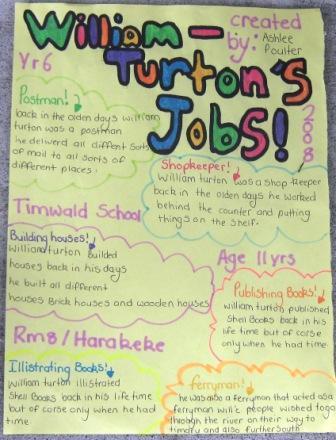 William -
Turton's
Jobs!
created
by: Ashlee
Poulter
Yr6
2008
Postman!
back in the olden days william
turton was a postman
he deliverd all diffent sorts
of mail to all sorts of
different places.
Shopkeeper!
William turton was a shop keeper
back in the olden days he worked
behind the counter and putting
things on the shelf.
Timwald School
Building houses!
William turton builded
houses back in his days
he built all different
houses Brick houses and wooden houses
Age 11yrs
Publishing Books!
william turton published
Shell Books back in his
life time but of corse
only when he had time.
Rm8/Harakeke
Illistrating Books!
William turton illistrated
Shell Books back in his life time
but of corse only when he had
time.
ferryman!
he was also a ferryman that acted as a
ferryman will people wished to go
through the river on their way to
timaru and also further South